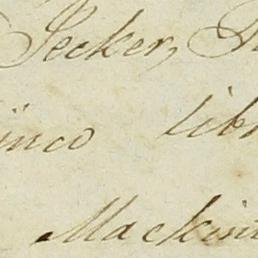 Secker,
inco libr
Mackint